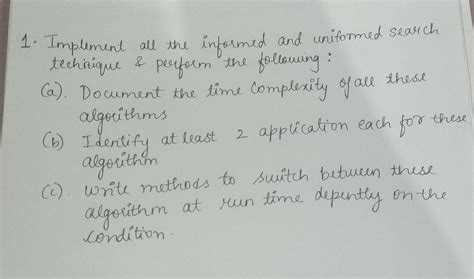 1. Implement all the informed and uniformed search
technique & perform the following :
(a). Document the time complexity of all these
algorithms
(b) Identify at least 2 application each for these
algorithm
(c). write methods to switch between these
algorithm at run time depently on the
condition.